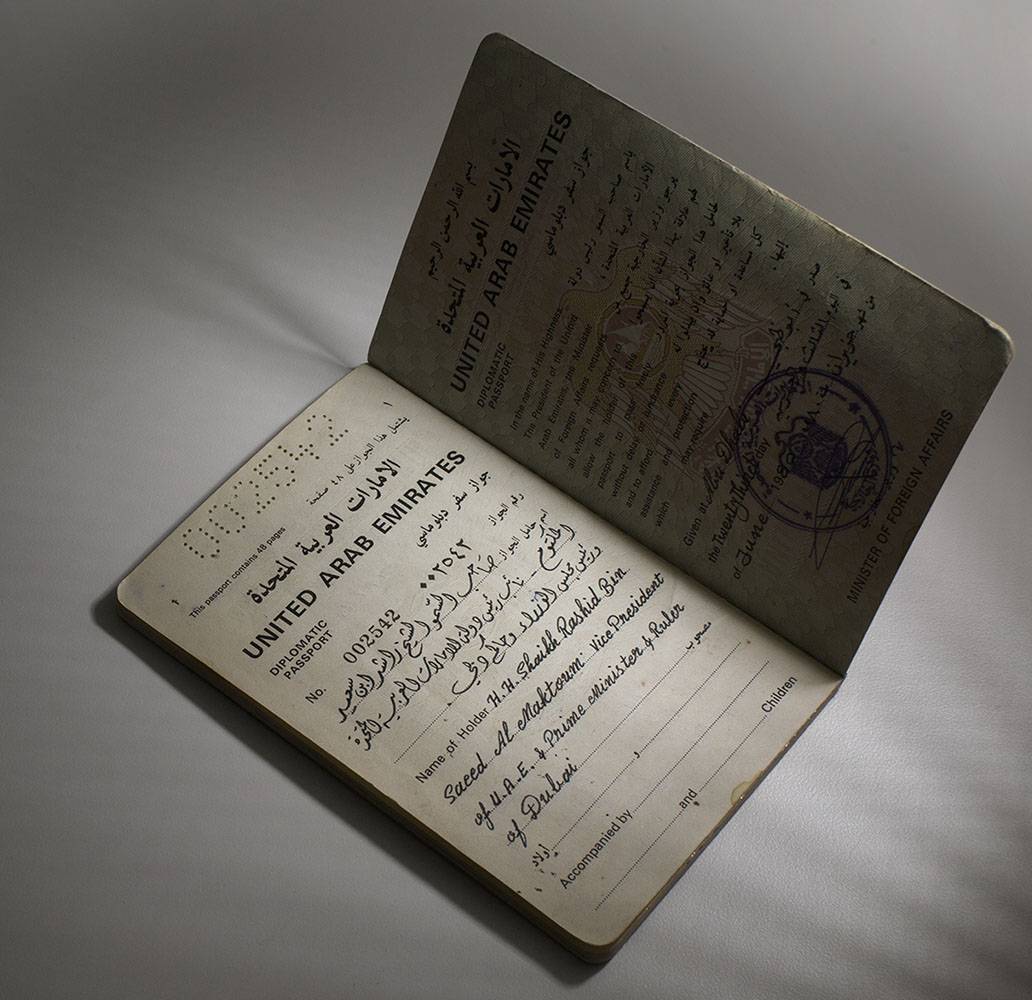 بسم الله الرحمن الرحيم
الامارات العربية المتحدة
UNITED ARAB EMIRATES
DIPLOMATIC
PASSPORT
جواز سفر دبلوماسي
باسم صاحب السمو رئيس دولة
الامارات العربية المتحدة
In the name of His Highness
The President of the United
Arab Emirates, the Minister
of Foreign Affairs requests
all whom it may concern to
allow the holder of this
passport to pass freely
without delay or hindrance
and to afford every
assistance and protection
which may require
Given at Abu Dhabi
the Twenty third day
of June
MINISTER OF FOREIGN AFFAIRS
002542
١
يشتمل هذا الجواز على ٤٨ صفحة
This passport contains 48 pages
الامارات العربية المتحدة
UNITED ARAB EMIRATES
جواز سفر دبلوماسي
DIPLOMATIC
PASSPORT
رقم الجواز
٠٠٢٥٤٢
No. 002542
اسم حامل الجواز صاحب السمو الشيخ راشد بن سعيد
المكتوم نائب رئيس دولة الامارات العربية المتحدة
رئيس مجلس الوزراء وحاكم دبي
Name of Holder H.H. Shaikh Rashid Bin
Saeed Al Maktoum: Vice President
of U.A.E. & Prime Minister & Ruler
of Dubai
مصحوب
أولاد
Accompanied by
and Children